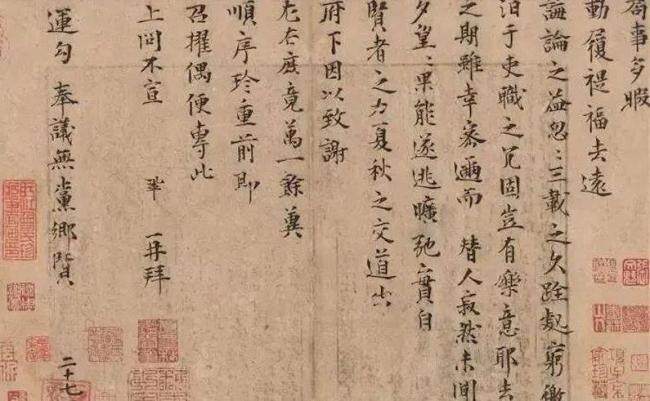 局事多暇
動履禔福去遠
誨論之益忽〻三載之久跧處窮徼
汨于吏職之冗固豈有樂意耶去
之期雖幸密邇而替人寂然未聞
夕望〻果能遂逃曠弛實自
賢者之力夏秋之交道出
府下因以致謝
左右庶竟萬一餘冀
順序珍重前即
召擢偶便專此
上問不宣 鞏 再拜
運勾奉議無黨鄉賢
二十七